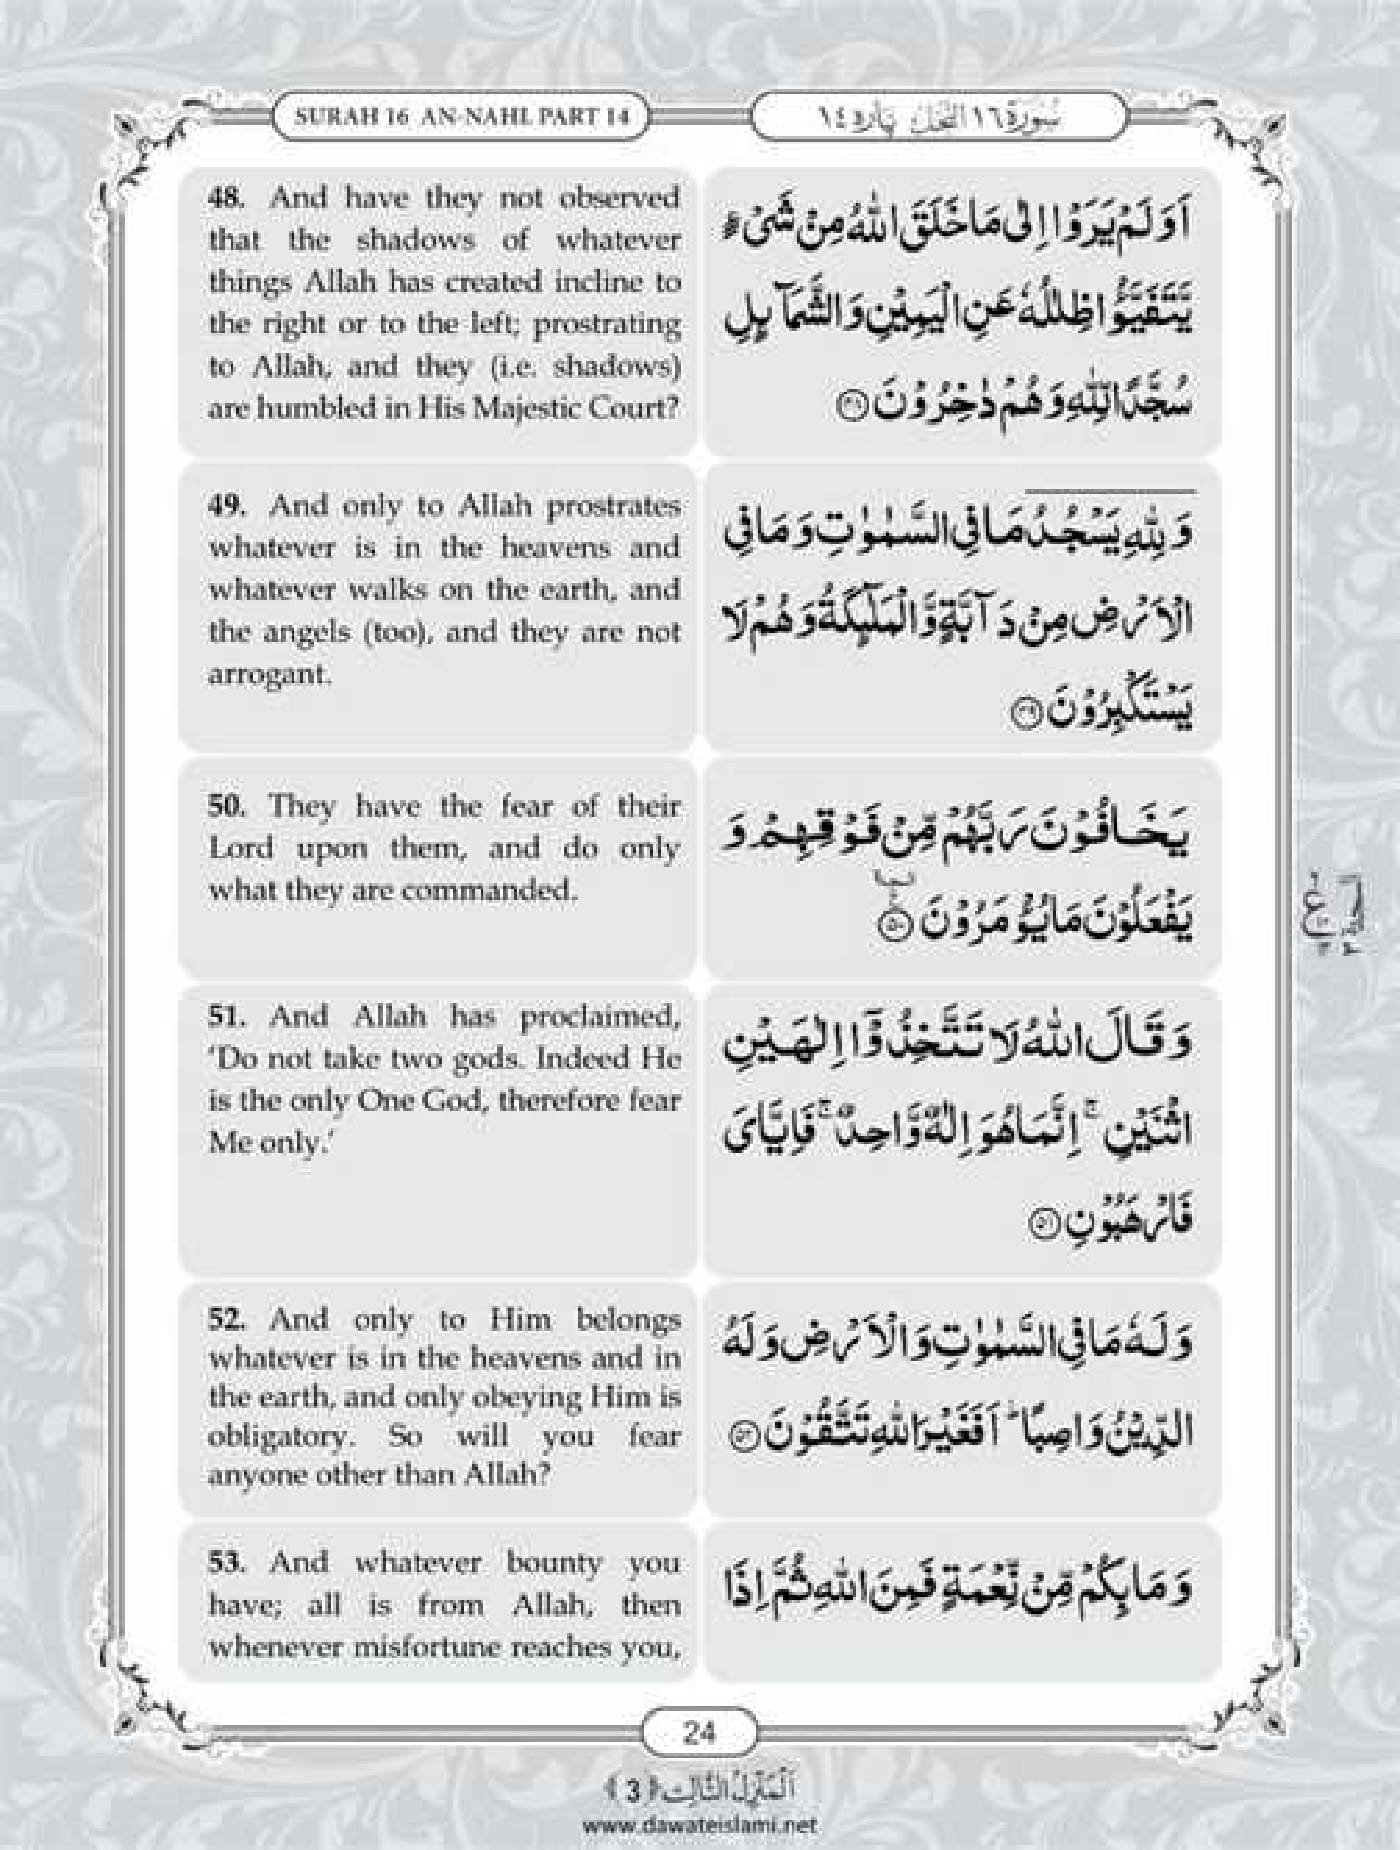 SURAH 16 AN-NAHL PART 14
سُورَة ١٦ النَّحل پَارہ ١٤
48. And have they not observed
that the shadows of whatever
things Allah has created incline to
the right or to the left; prostrating
to Allah, and they (i.e. shadows)
are humbled in His Majestic Court?
اَوَلَمْ يَرَوْا اِلٰى مَا خَلَقَ اللّٰهُ مِنْ شَیْءٍ
يَّتَفَيَّؤُا ظِلٰلُهٗ عَنِ الْيَمِيْنِ وَالشَّمَآىِٕلِ
سُجَّدًا لِّلّٰهِ وَهُمْ دٰخِرُوْنَ ﴿۴۸﴾
49. And only to Allah prostrates
whatever is in the heavens and
whatever walks on the earth, and
the angels (too), and they are not
arrogant.
وَ لِلّٰهِ يَسْجُدُ مَا فِی السَّمٰوٰتِ وَمَا فِی
الْاَرْضِ مِنْ دَآبَّةٍ وَّ الْمَلٰٓىِٕكَةُ وَهُمْ لَا
يَسْتَكْبِرُوْنَ ﴿۴۹﴾
50. They have the fear of their
Lord upon them, and do only
what they are commanded.
يَخَافُوْنَ رَبَّهُمْ مِّنْ فَوْقِهِمْ وَ
يَفْعَلُوْنَ مَا يُؤْمَرُوْنَ ﴿۵۰﴾
51. And Allah has proclaimed,
‘Do not take two gods. Indeed He
is the only One God, therefore fear
Me only.’
وَقَالَ اللّٰهُ لَا تَتَّخِذُوْۤا اِلٰهَيْنِ
اثْنَيْنِ ۚ اِنَّمَا هُوَ اِلٰهٌ وَّاحِدٌ ۚ فَاِيَّایَ
فَارْهَبُوْنِ ﴿۵۱﴾
52. And only to Him belongs
whatever is in the heavens and in
the earth, and only obeying Him is
obligatory. So will you fear
anyone other than Allah?
وَلَهٗ مَا فِی السَّمٰوٰتِ وَالْاَرْضِ وَلَهُ
الدِّيْنُ وَاصِبًا ؕ اَفَغَيْرَ اللّٰهِ تَتَّقُوْنَ ﴿۵۲﴾
53. And whatever bounty you
have; all is from Allah, then
whenever misfortune reaches you,
وَمَا بِكُمْ مِّنْ نِّعْمَةٍ فَمِنَ اللّٰهِ ثُمَّ اِذَا
24
اَلْمَنْزِلُ الثَّالِث ﴿3﴾
www.dawateislami.net